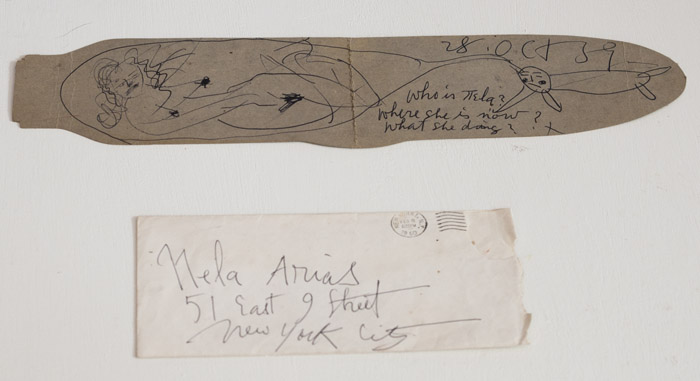 28 · OCT 39
Who is Nela?
Where she is now ?
What she doing ? ! x
Nela Arias
51 East 9 Street
New York City